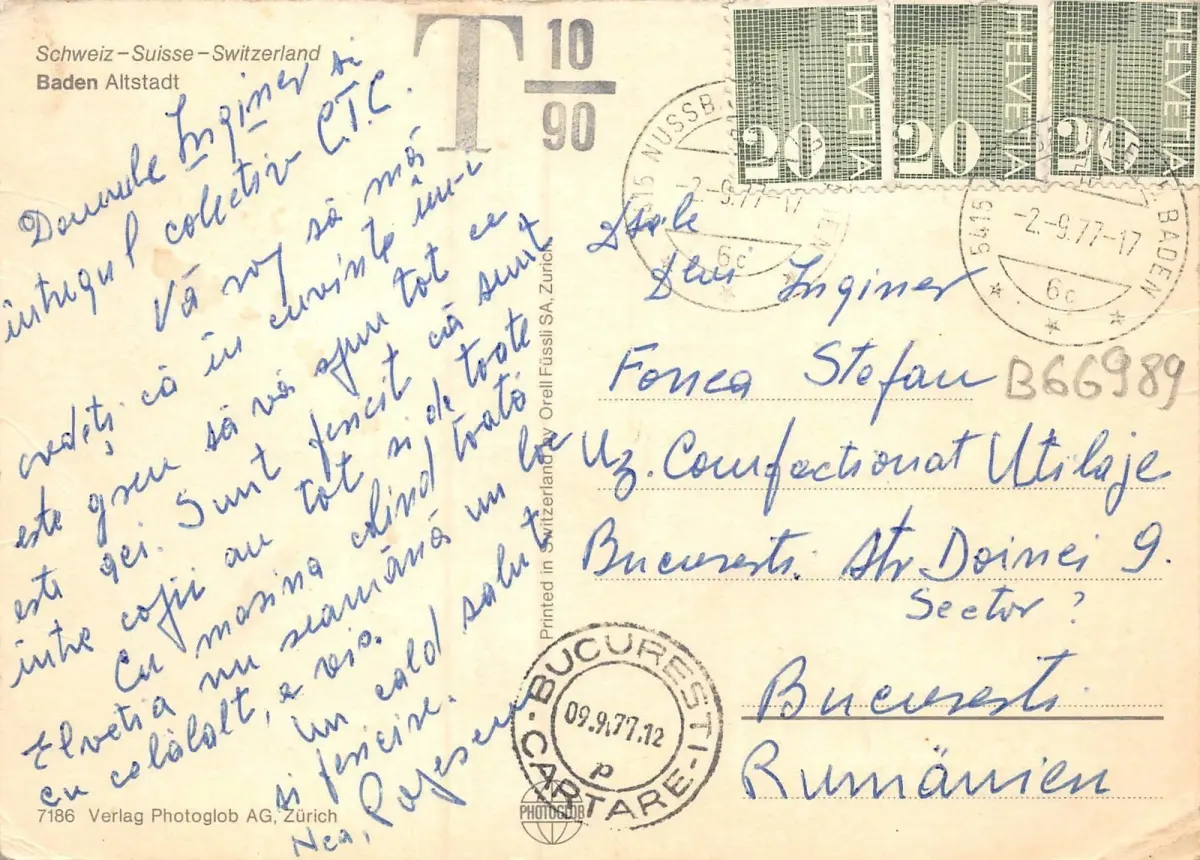 Schweiz – Suisse – Switzerland
Baden Altstadt
Domnule Inginer si
întregul colectiv C.T.C.
Vă rog să mă
credeți că în cuvinte îm-i
este greu să vă spun tot ce
este aci. Sunt fericit că sunt
între copii au tot si de toate
Cu masina colind toată
Elvetia nu seamănă un loc
cu celălalt, e vis.
Un cald salut
si fericire.
Nea,
7186 Verlag Photoglob AG, Zürich
Printed in Switzerland by Orell Füssli SA, Zürich
PHOTOGLOB
T 10
90
HELVETIA 20
HELVETIA 20
HELVETIA 20
5415 NUSSB
-2.-9.77-17
6c
5415
BADEN
-2.-9.77-17
6c
Dlui Inginer
Fonea Stefan
B66989
Uz. Comfectionat Utilaje
Bucuresti. Str Doinei 9.
Sector ?
Bucuresti
Rumänien
BUCURESTI-CARTARE-
09.9.77.12
p